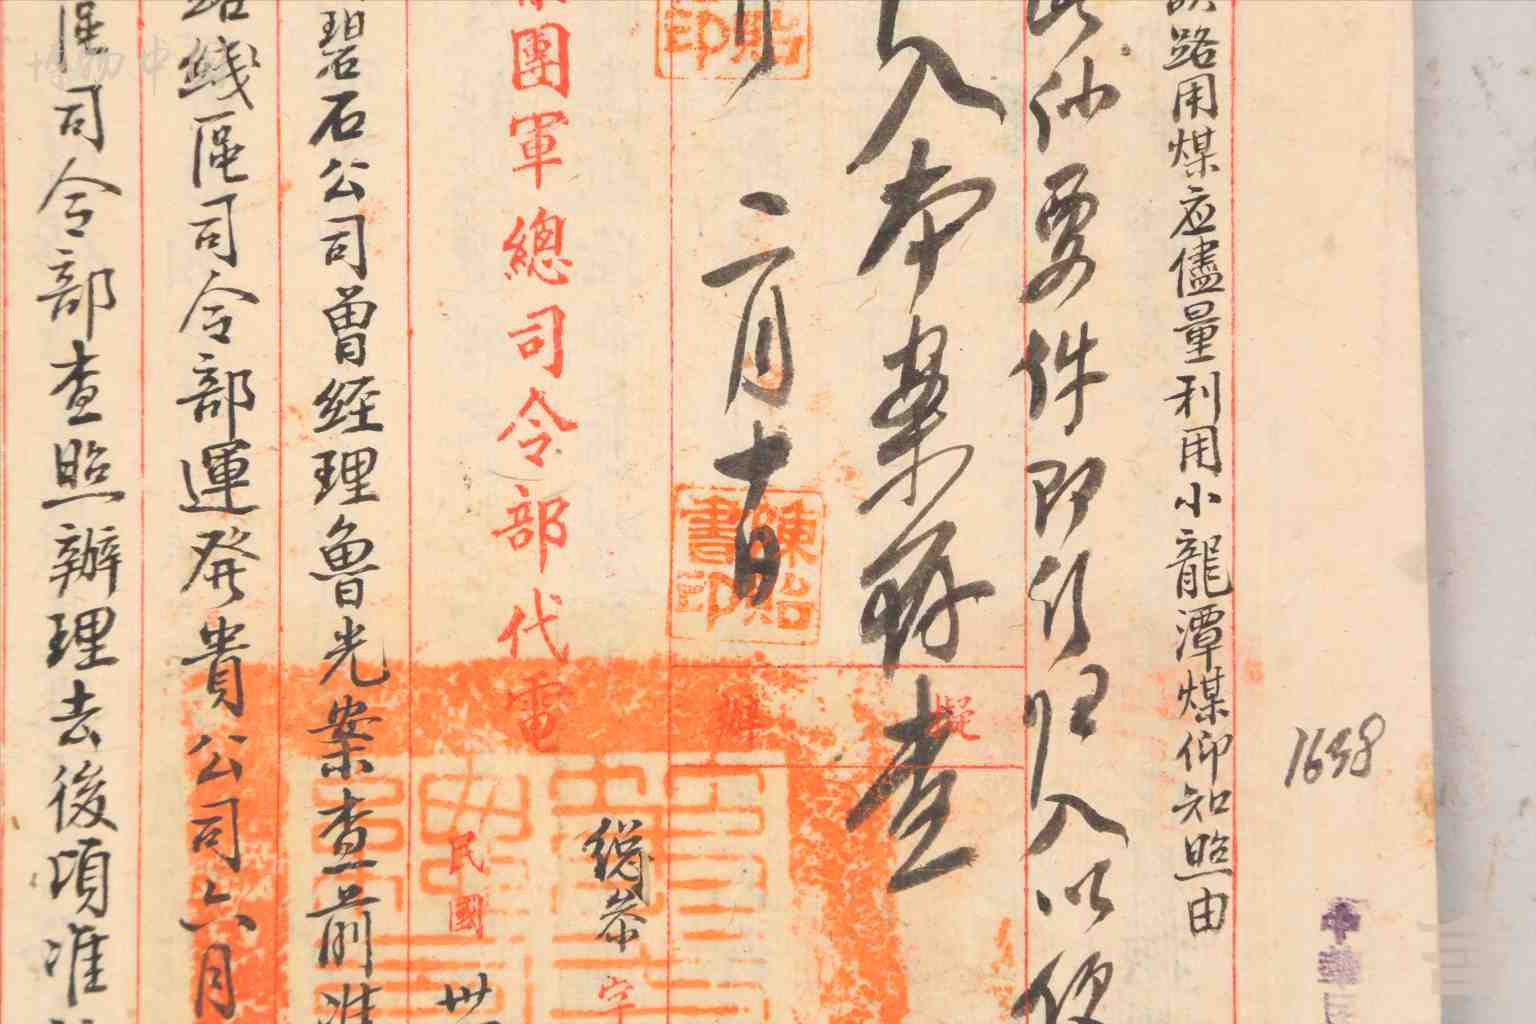 1698
路用煤应儘量利用小龍潭煤仰知照由
此係要件即行归入以便
入本案存查
二月十日
陳貽書印
團軍總司令部代電
擬辦
總參字
民國卅
碧石公司曾經理魯光案查前准
路綫區司令部運發貴公司六月
區司令部查照辦理去後頃准